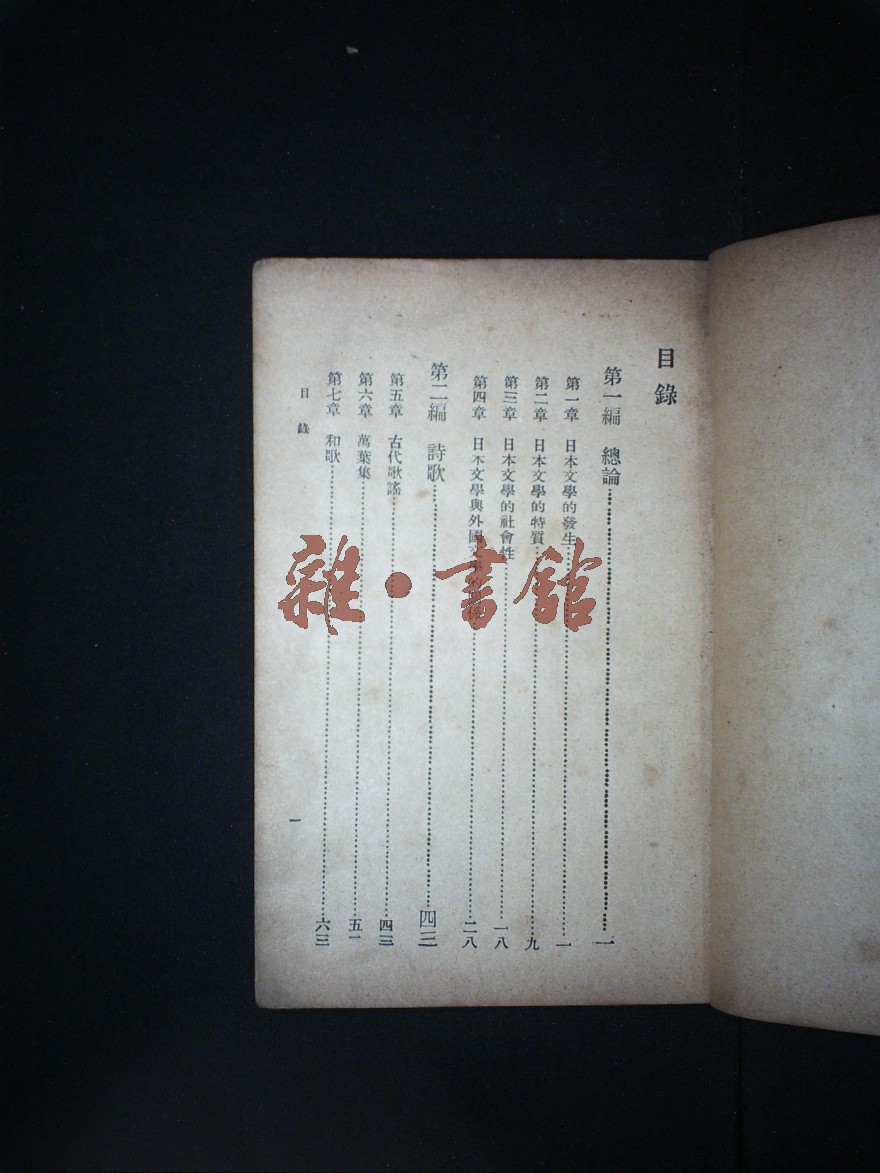 目錄
第一編 總論⋯⋯一
第一章 日本文學的發生⋯⋯一
第二章 日本文學的特質⋯⋯九
第三章 日本文學的社會性⋯⋯一八
第四章 日本文學與外國文學的⋯⋯二八
第二編 詩歌⋯⋯四三
第五章 古代歌謠⋯⋯四三
第六章 萬葉集⋯⋯五一
第七章 和歌⋯⋯六三
目錄
一
雜·書館